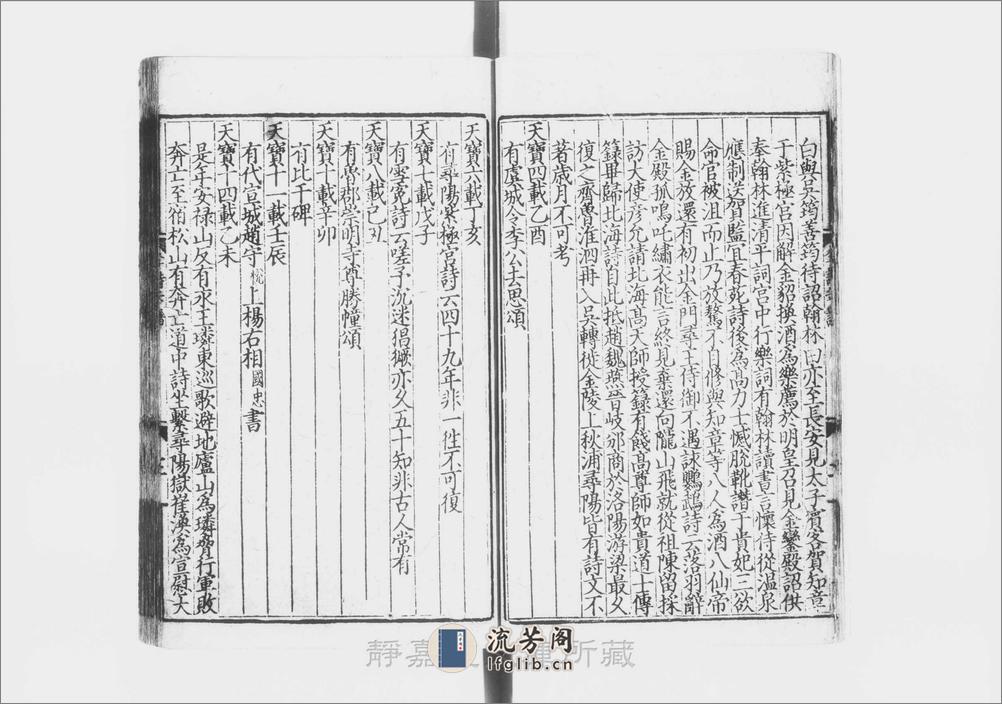 白與吳筠善筠待詔翰林白亦至長安見太子賓客賀知章
于紫極宮因解金貂換酒為樂薦於明皇召見金鑾殿詔供
奉翰林進清平詞宮中行樂詞有翰林讀書言懷侍從溫泉
應制送賀監宜春苑詩後為髙力士憾脫靴譖于貴妃三欲
命官被沮而止乃放驁不自修與知章等八人為酒八仙帝
賜金放還有初出金門尋王侍御不遇詠鸚鵡詩云落羽辭
金殿孤鳴吒繡衣能言終見棄還向隴山飛就從祖陳留採
訪大使彥允請北海髙天師授籙有餞髙尊師如貴道士傳
籙畢歸北海詩自此抵趙魏燕晉岐邠商於洛陽游梁最久
復之齊魯淮泗再入吳轉徙金陵上秋浦尋陽皆有詩文不
著歲月不可考
天寶四載乙酉
有虞城令李公去思頌
天寶六載丁亥
有尋陽紫極宮詩云四十九年非一徃不可復
天寶七載戊子
有雪讒詩云嗟予沉迷猖獗亦久五十知非古人常有
天寶八載己丑
有魯郡崇明寺尊勝幢頌
天寶十載辛卯
有比干碑
天寶十一載壬辰
有代宣城趙守恱上楊右相國忠書
天寶十四載乙未
是年安禄山反有永王璘東巡歌避地廬山為璘脅行軍敗
奔亡至宿松山有奔亡道中詩坐繫尋陽獄崔渙為宣慰大
靜嘉 所藏
流芳阁
lfglib.cn